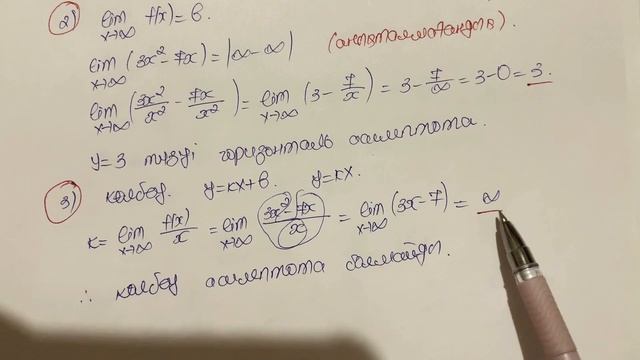 2) lim x→∞ f(x) = b.
lim x→∞ (3x² - 7x) = |∞ - ∞|
lim x→∞ (3x²/x² - 7x/x²) = lim x→∞ (3 - 7/x) = 3 - 7/∞ = 3 - 0 = 3.
y = 3 түзуі горизонталь асимптота.
3) көлбеу. y = kx + b. y = kx.
k = lim x→∞ f(x)/x = lim x→∞ (3x² - 7x)/x = lim x→∞ (3x - 7) = ∞
∴ көлбеу асимптота болмайды.